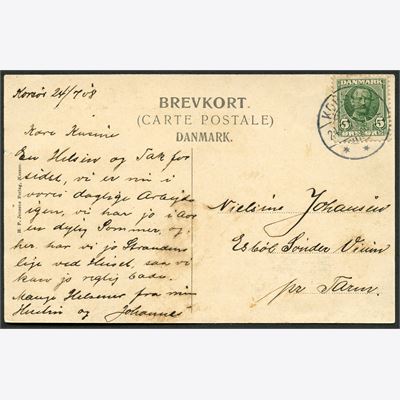 Korsør 24/7 08
BREVKORT.
(CARTE POSTALE)
DANMARK.
DANMARK
5 5
ØRE ØRE
KO
2
Kære Kusine
En Hilsen og Tak for
sidst, vi er nu i
vores daglige Arbejde
igen, vi har jo i Aar
en dejlig Sommer, og
her har vi jo Stranden
lige ved Huset, saa vi
kan jo rigtig bade.
Mange Hilsener fra min
Hustru og Johannes
Nielsine Johansen
Esbøl Sønder Vium
pr Tarm.
H. P. Jensens Forlag, Korsør.